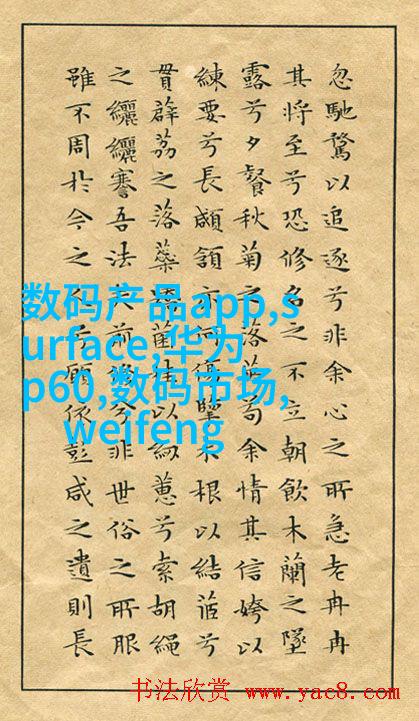 忽馳騖以追逐兮非余心之所急老冉冉
其將至兮恐修名之不立朝飲木蘭之墜
露兮夕餐秋菊之落英苟余情其信姱以
練要兮長顑頷亦何傷擥木根以結茝兮
貫薜荔之落蘂矯菌桂以紉蕙兮索胡繩
之纚纚謇吾法夫前修兮非世俗之所服
雖不周於今之人兮願依彭咸之遺則長
数码产品app,s
urface,华为
p60,数码市场,
weifeng
书法欣赏 www.yac8.com